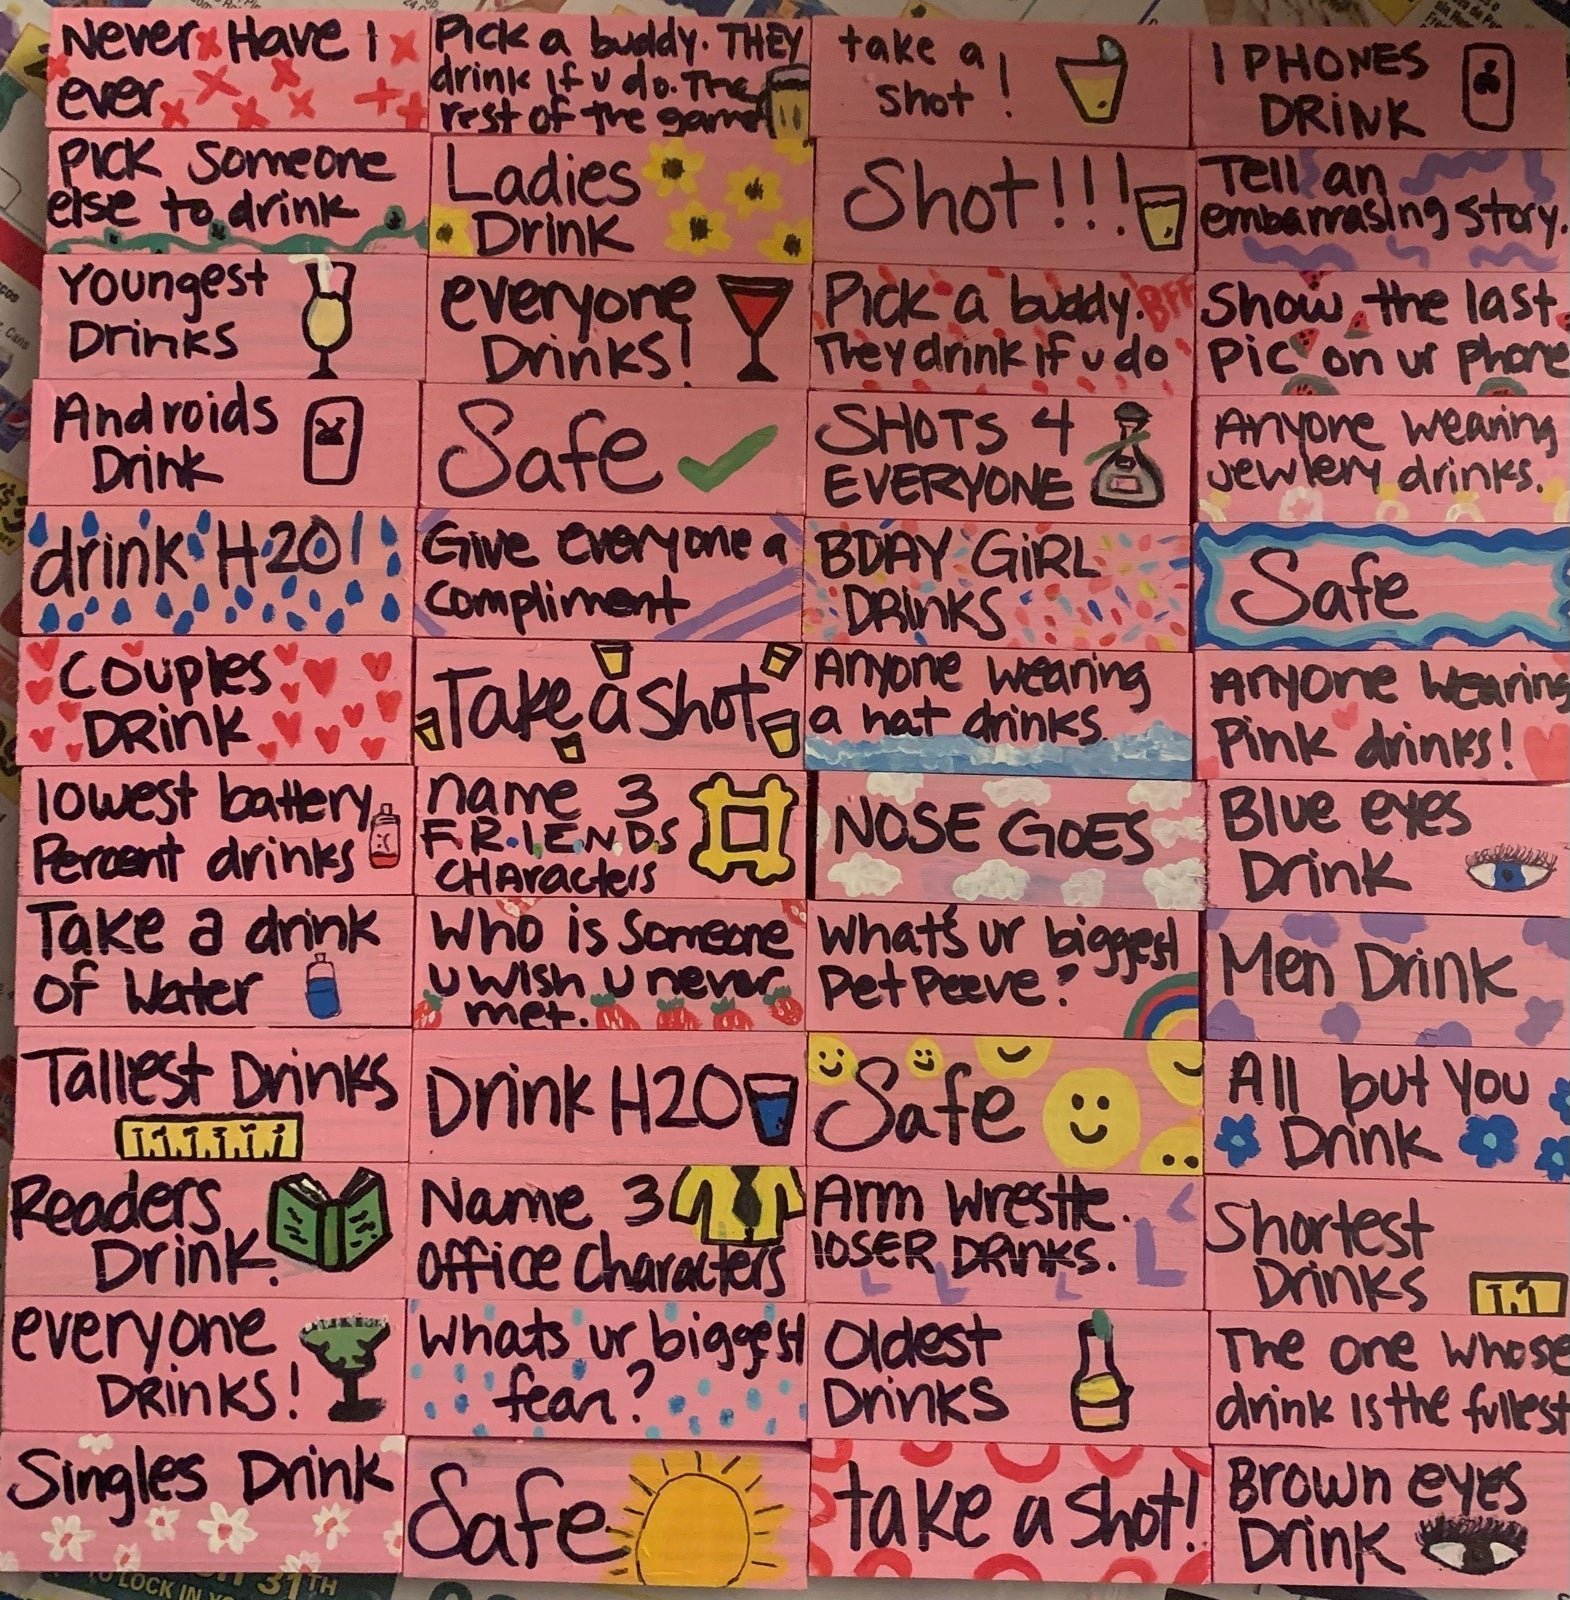 Never Have I
ever
Pick a buddy. THEY
drink if u do. The
rest of the game
take a
shot!
I PHONES
DRINK
Pick someone
else to drink
Ladies
Drink
Shot!!!
Tell an
embarrasing story.
Youngest
Drinks
everyone
Drinks!
Pick a buddy. BFF
They drink if u do
Show the last
pic on ur phone
Androids
Drink
Safe
SHOTS 4
EVERYONE
Anyone wearing
jewlery drinks.
drink H2O!
Give everyone a
compliment
BDAY GIRL
DRINKS
Safe
Couples
DRINK
Take a shot
Anyone wearing
a hat drinks.
Anyone wearing
Pink drinks!
lowest battery
Percent drinks
name 3
F.R.I.E.N.D.S
CHAracters
NOSE GOES
Blue eyes
Drink
Take a drink
of Water
Who is someone
u wish u never
met.
What's ur biggest
Pet Peeve?
Men Drink
Tallest Drinks
Drink H2O
Safe
All but you
Drink
Readers
Drink.
Name 3
office characters
Arm Wrestle.
lOSER DRINKS.
Shortest
Drinks
everyone
DRinks!
Whats ur biggest
fear?
Oldest
Drinks
The one whose
drink is the fullest
Singles Drink
Safe
take a shot!
Brown eyes
Drink
31TH
TO LOCK IN